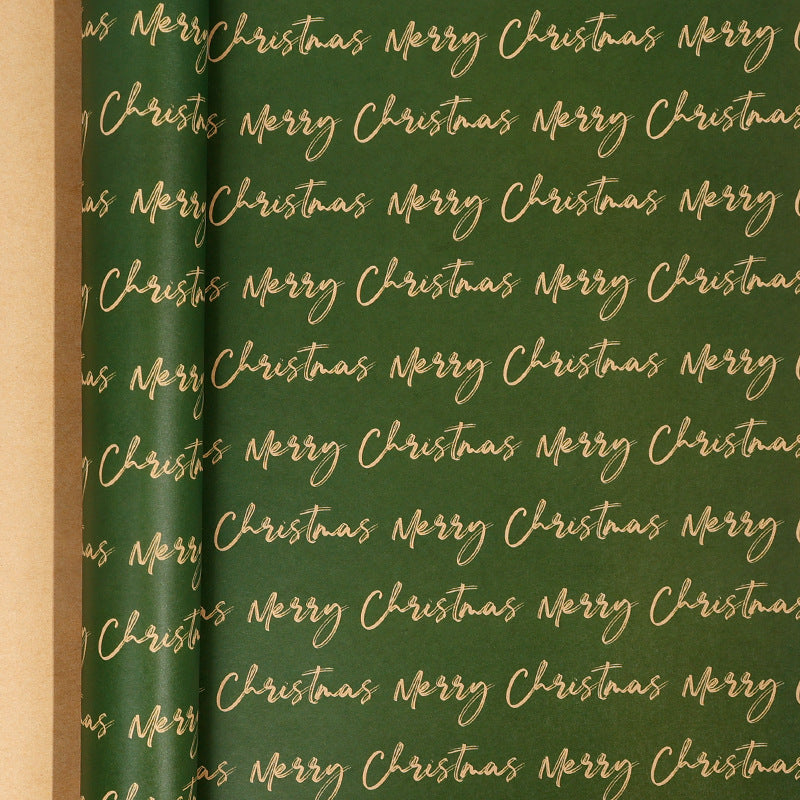 as Merry Christmas Merry Christmas Merry
Christmas Merry Christmas Merry Christmas
as Merry Christmas Merry Christmas Merry
Christmas Merry Christmas Merry Christmas
as Merry Christmas Merry Christmas Merry
Christmas Merry Christmas Merry Christmas
as Merry Christmas Merry Christmas Merry
Christmas Merry Christmas Merry Christmas
as Merry Christmas Merry Christmas Merry
Christmas Merry Christmas Merry Christmas